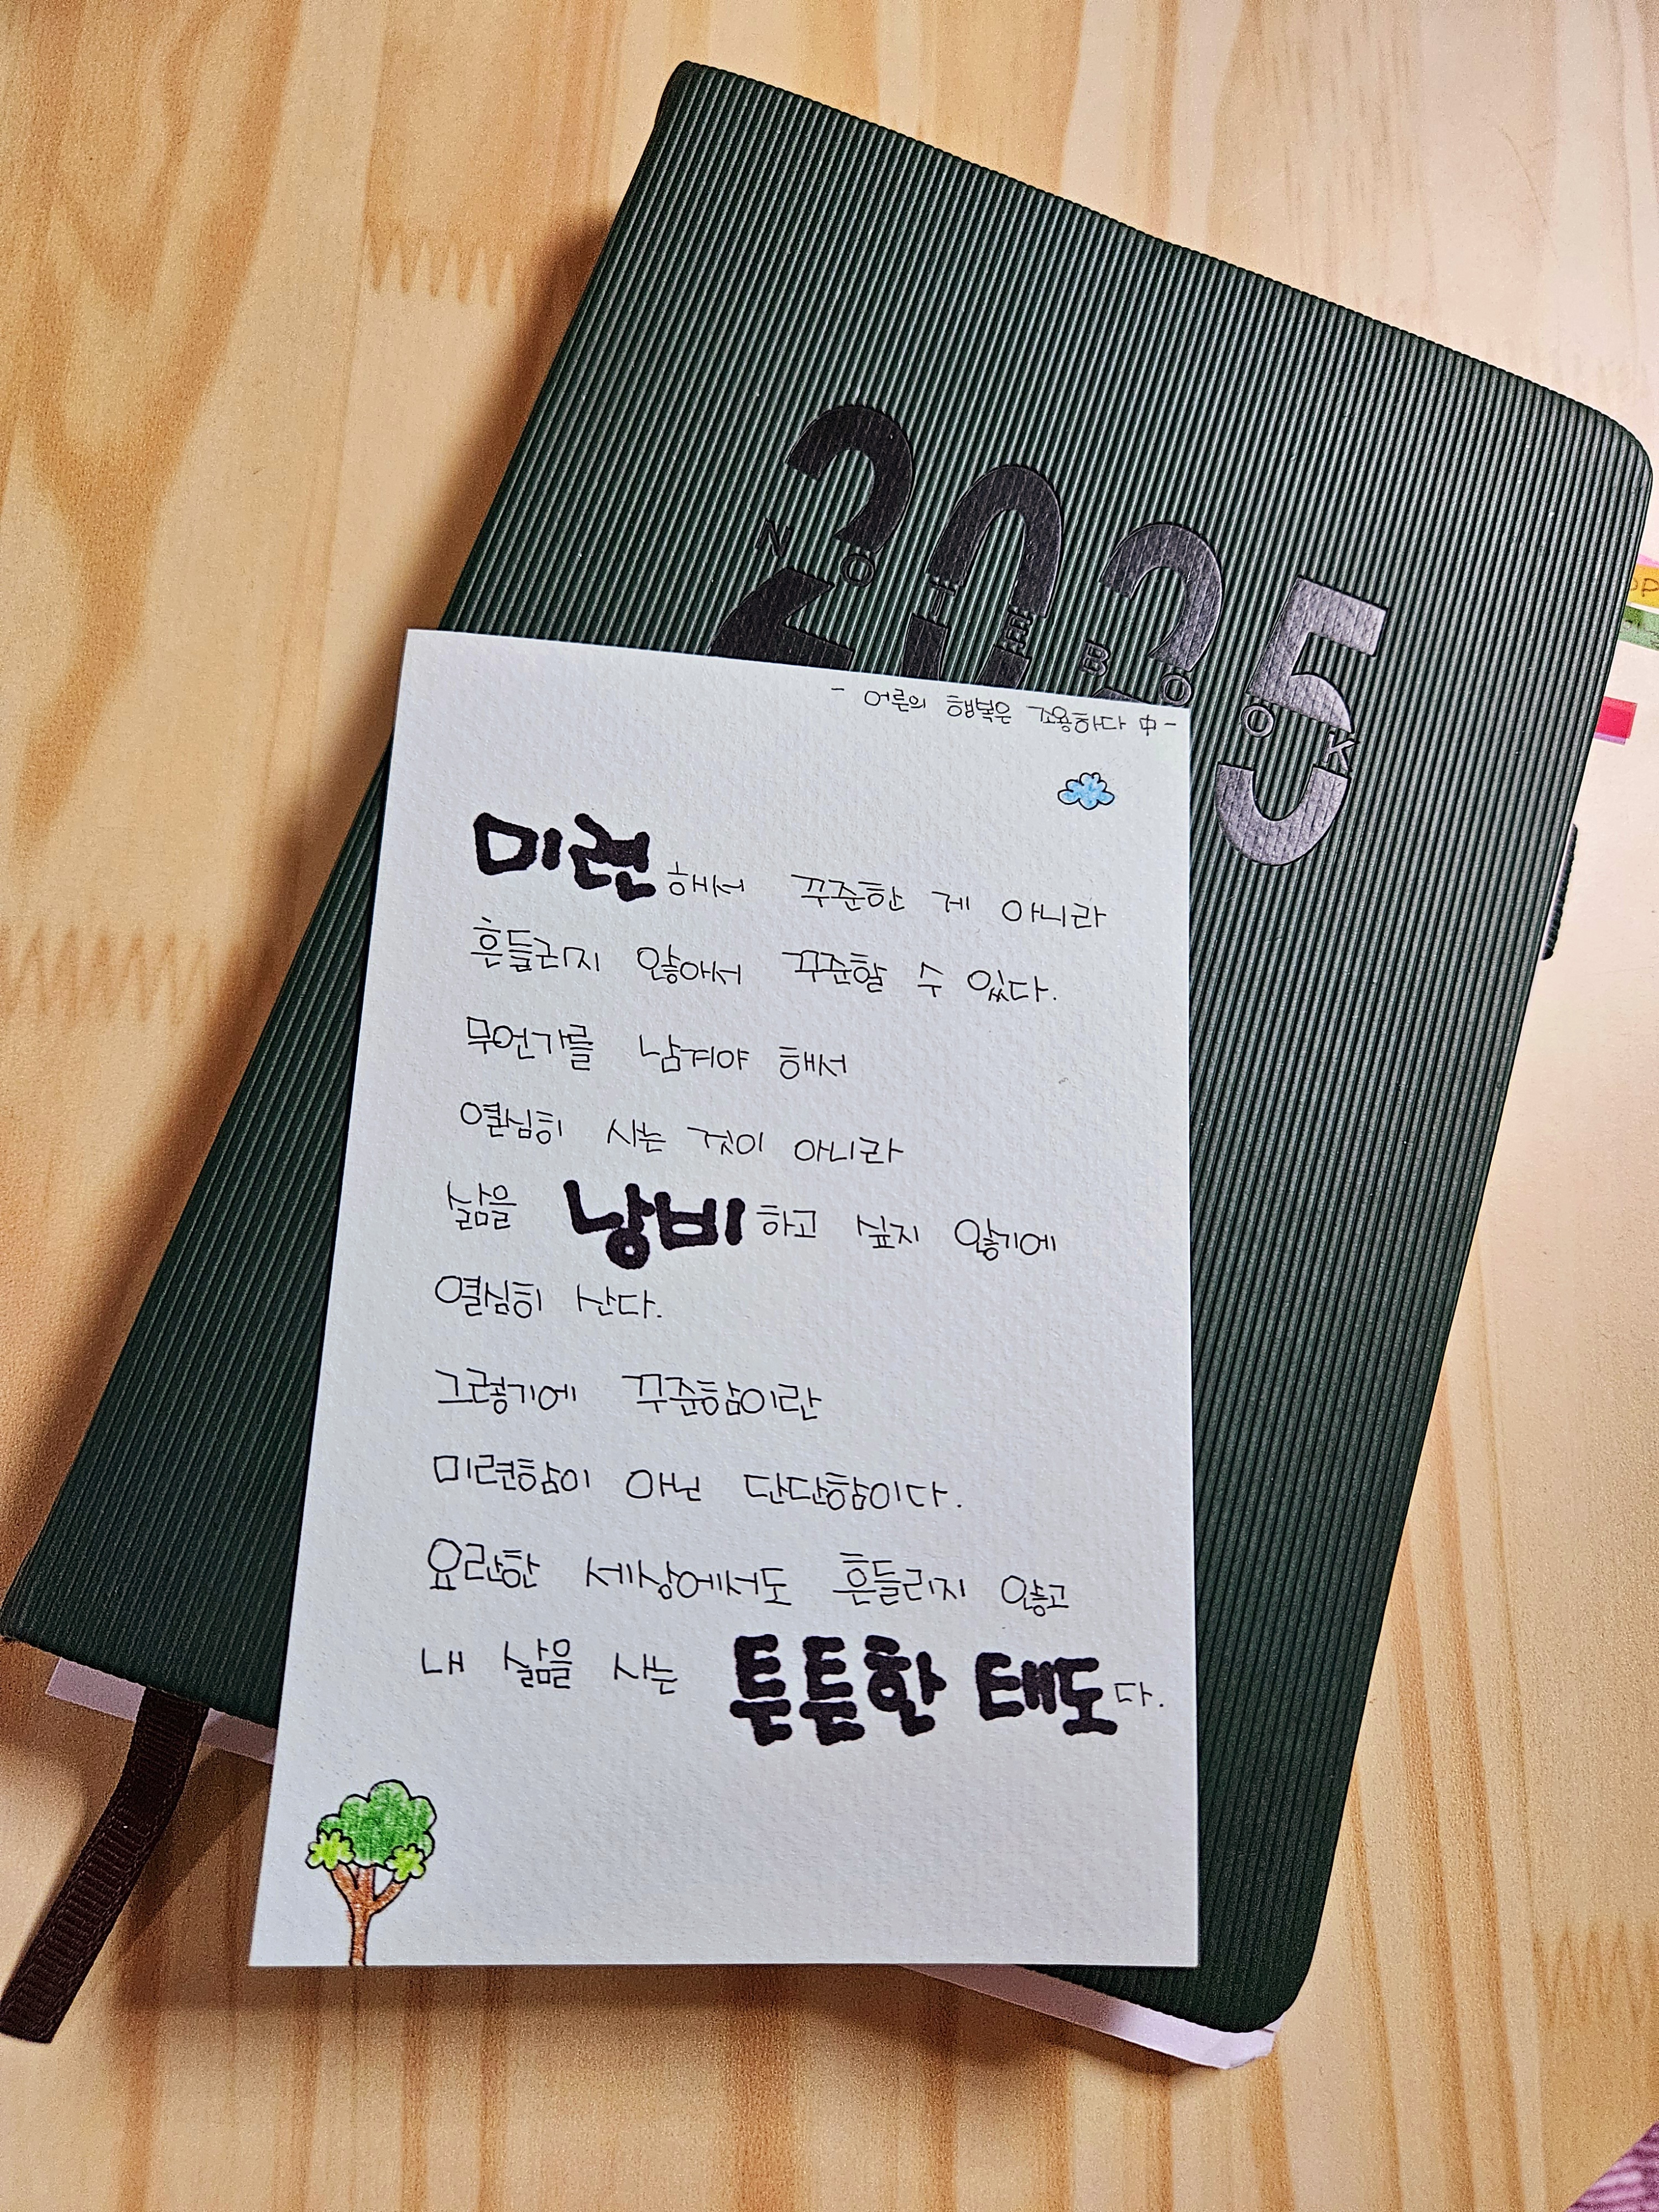 2025
NOTEBOOK
- 어른의 행복은 조용하다 中-
미련해서 꾸준한 게 아니라
흔들리지 않아서 꾸준할 수 있다.
무언가를 남겨야 해서
열심히 사는 것이 아니라
삶을 낭비하고 싶지 않기에
열심히 산다.
그렇기에 꾸준함이란
미련함이 아닌 단단함이다.
요란한 세상에서도 흔들리지 않고
내 삶을 사는 튼튼한 태도다.